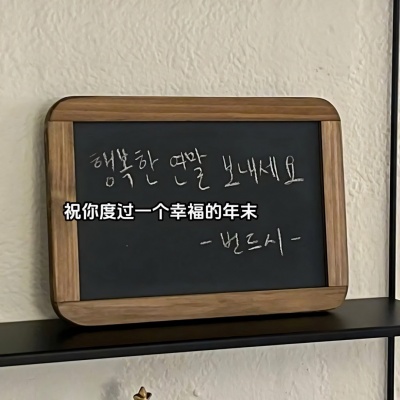 행복한 연말 보내세요
祝你度过一个幸福的年末
- 번드시 -